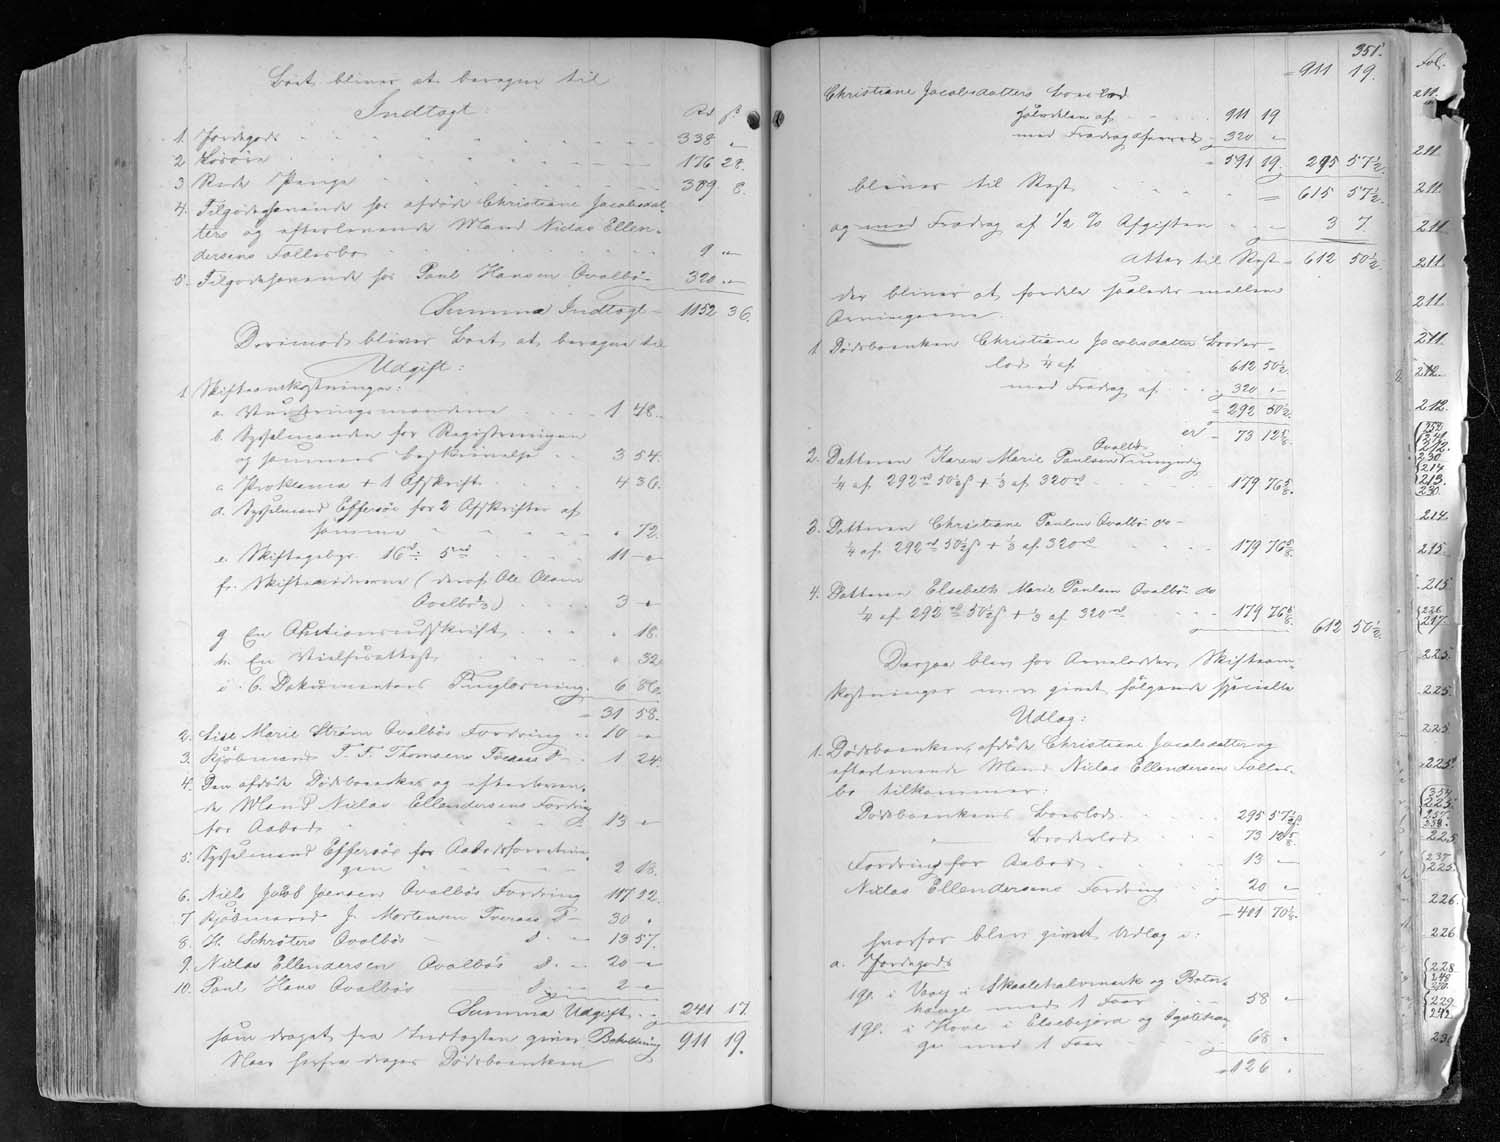 Boet bliver at beregne til
Indtægt:
Rd ß
1 Jordegods 338 "
2 Løsøre 176 28.
3 Rede Penge 309 8.
4. Tilgodehavende hos afdøde Christiane Jacobsdat-
ters og efterlevende Mand Niclas Ellen-
dersens Fællesbo 9 "
5. Tilgodehavende hos Paul Hansen Qvalbø 320 "
Summa Indtægt 1152 36.
Derimod bliver Boet at beregne til
Udgift:
1 Skifteomkostninger:
a. Vurderingsmændene 1 48.
b. Sysselmanden for Registreringen
og sammes beskrivelse 3 54.
c Proklama + 1 Afskrift 4 36.
d. Sysselmand Effersøe for 2 Afskrifter af
samme " 72.
e. Skiftegebyr 16 5 11 "
f. Skiftevidnerne (deraf Ole Olsen
Qvalbø 1/3) 3 "
g En Auktionsudskrift " 18.
h. En Vielsesattest " 32
i 6. Dokumenters Tinglæsning 6 86.
31 58.
2. Lise Marie Strøm Qvalbøs Fordring 10 "
3. Kjøbmand T. F. Thomsens Tveraae F 1 24.
4. Den afdøde Dødsboenkes og efterleven-
de Mand Niclas Ellendersens Fordring
for Aabod 13 "
5. Sysselmand Effersøe for Aabodsforretnin-
gen 2 18.
6. Niels Jacob Joensen Qvalbøs Fordring 117 52.
7 Kjøbmand J. Mortensen Tveraae F 30 "
8. H. Schrøters Qvalbøs d. 13 57.
9. Niclas Ellendersen Qvalbøs d. 20 "
10. Paul Hans Qvalbøs d. 2 "
Summa Udgift 241 17.
som draget fra Indtægten giver Beholdning 911 19.
Naar herfra drages Dødsboenken
351.
911 19.
Christiane Jacobsdatters Boeslod
Halvdelen af 911 19
med Fradrag af 320 "
591 19. 295 57½.
bliver til Rest 615 57½.
og med Fradrag af ½ % Afgiften 3 7
atter til Rest 612 50½.
der bliver at fordele saaledes mellem
Arvingerne.
1 Dødsboenken Christiane Jacobsdatter Broder-
lod ¼ af 612 50½.
med Fradrag af 320 "
292 50½.
er 73 12⅝.
2. Datteren Karen Marie Paulsen Qvalbø umyndig
¼ af 292 rd 50½ ß + ⅓ af 320 rd 179 76⅝.
3. Datteren Christiane Paulsen Qvalbø do
¼ af 292 rd 50½ ß + ⅓ af 320 rd 179 76⅝.
4. Datteren Elsebeth Marie Paulsen Qvalbø do
¼ af 292 rd 50½ ß + ⅓ af 320 rd 179 76⅝ 612 50½.
Derpaa blev for Arvelodder, Skifteom-
kostninger m.v. givet følgende specielle
Udlæg:
1. Dødsboenken, afdøde Christiane Jacobsdatter og
efterlevende Mand Niclas Ellendersen Fælles-
bo tilkommer:
Dødsboenkens Boeslod 295 57½
" Broderlod 73 12⅝
Fordring for Aabod 13 "
Niclas Ellendersens Fordring 20 "
401 70⅛.
hvorfor blev givet Udlæg i:
a. Jordegods
1 gl. i Vaag i Skaaletralvmark og Botn-
hauge med 1 Faar 58 "
1 gl. i Hove i Elsebejord og
ge med 1 Faar 68 "
126 "
Fol.
211.
211
211.
211.
211.
211.
211.
212.
212.
214
215.
215
225.
225.
225.
225.
226.
226